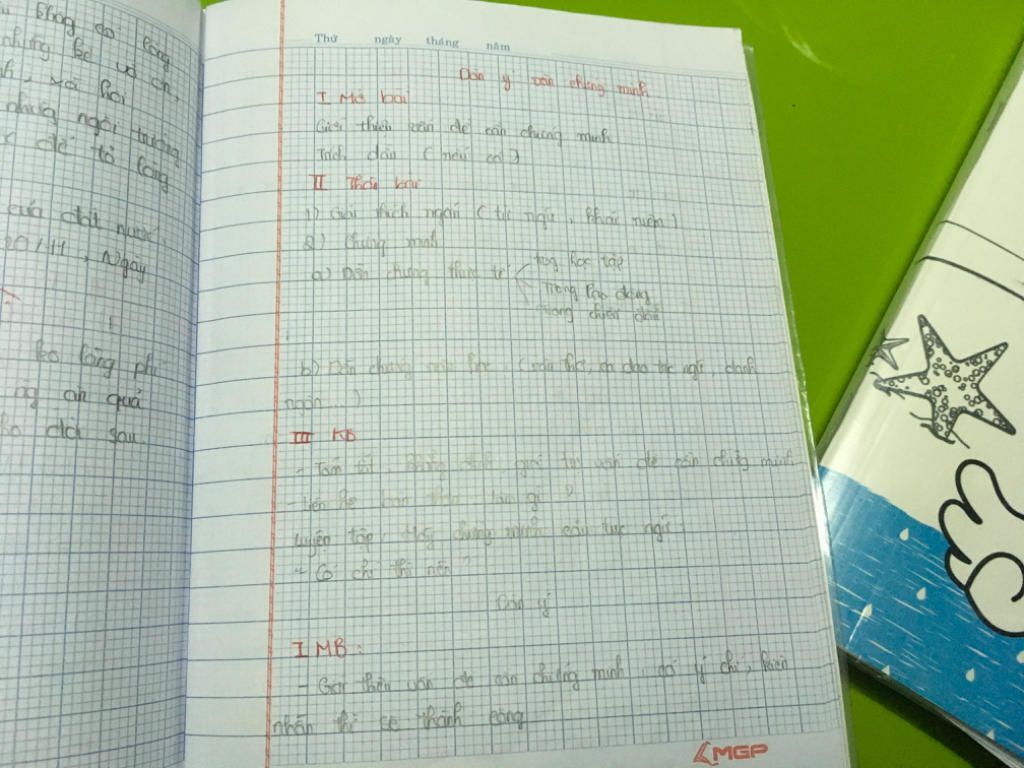 không
lòng
những kẻ vô ơn,
xã hội
những ngôi trường
để tỏ lòng
của đất nước
Ngày
lòng
quả
đời sau.
Thứ ngày tháng năm
Dàn ý văn chứng minh
I Mở bài
Giới thiệu vấn đề cần chứng minh
Trích dẫn (nếu có)
II Thân bài
1) Giải thích ngắn (tục ngữ, khái niệm)
2) Chứng minh
a) Dẫn chứng thực tế
Trong học tập
Trong lao động
Trong chiến đấu
b) Dẫn chứng văn học (văn thơ, ca dao tục ngữ, danh
ngôn ... )
III KB
- Tóm tắt, khẳng định giá trị vấn đề cần chứng minh
- Liên hệ bản thân làm gì ?
Luyện tập: Hãy chứng minh câu tục ngữ:
"Có chí thì nên"
Dàn ý
I MB:
- Giới thiệu vấn đề cần chứng minh: có ý chí, kiên
nhẫn thì sẽ thành công
MGP